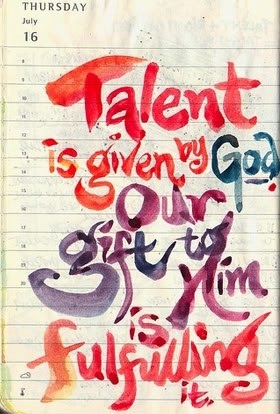 THURSDAY
July
16
Talent
is given by God
Our
gift to
Him
is
fulfulling
it.